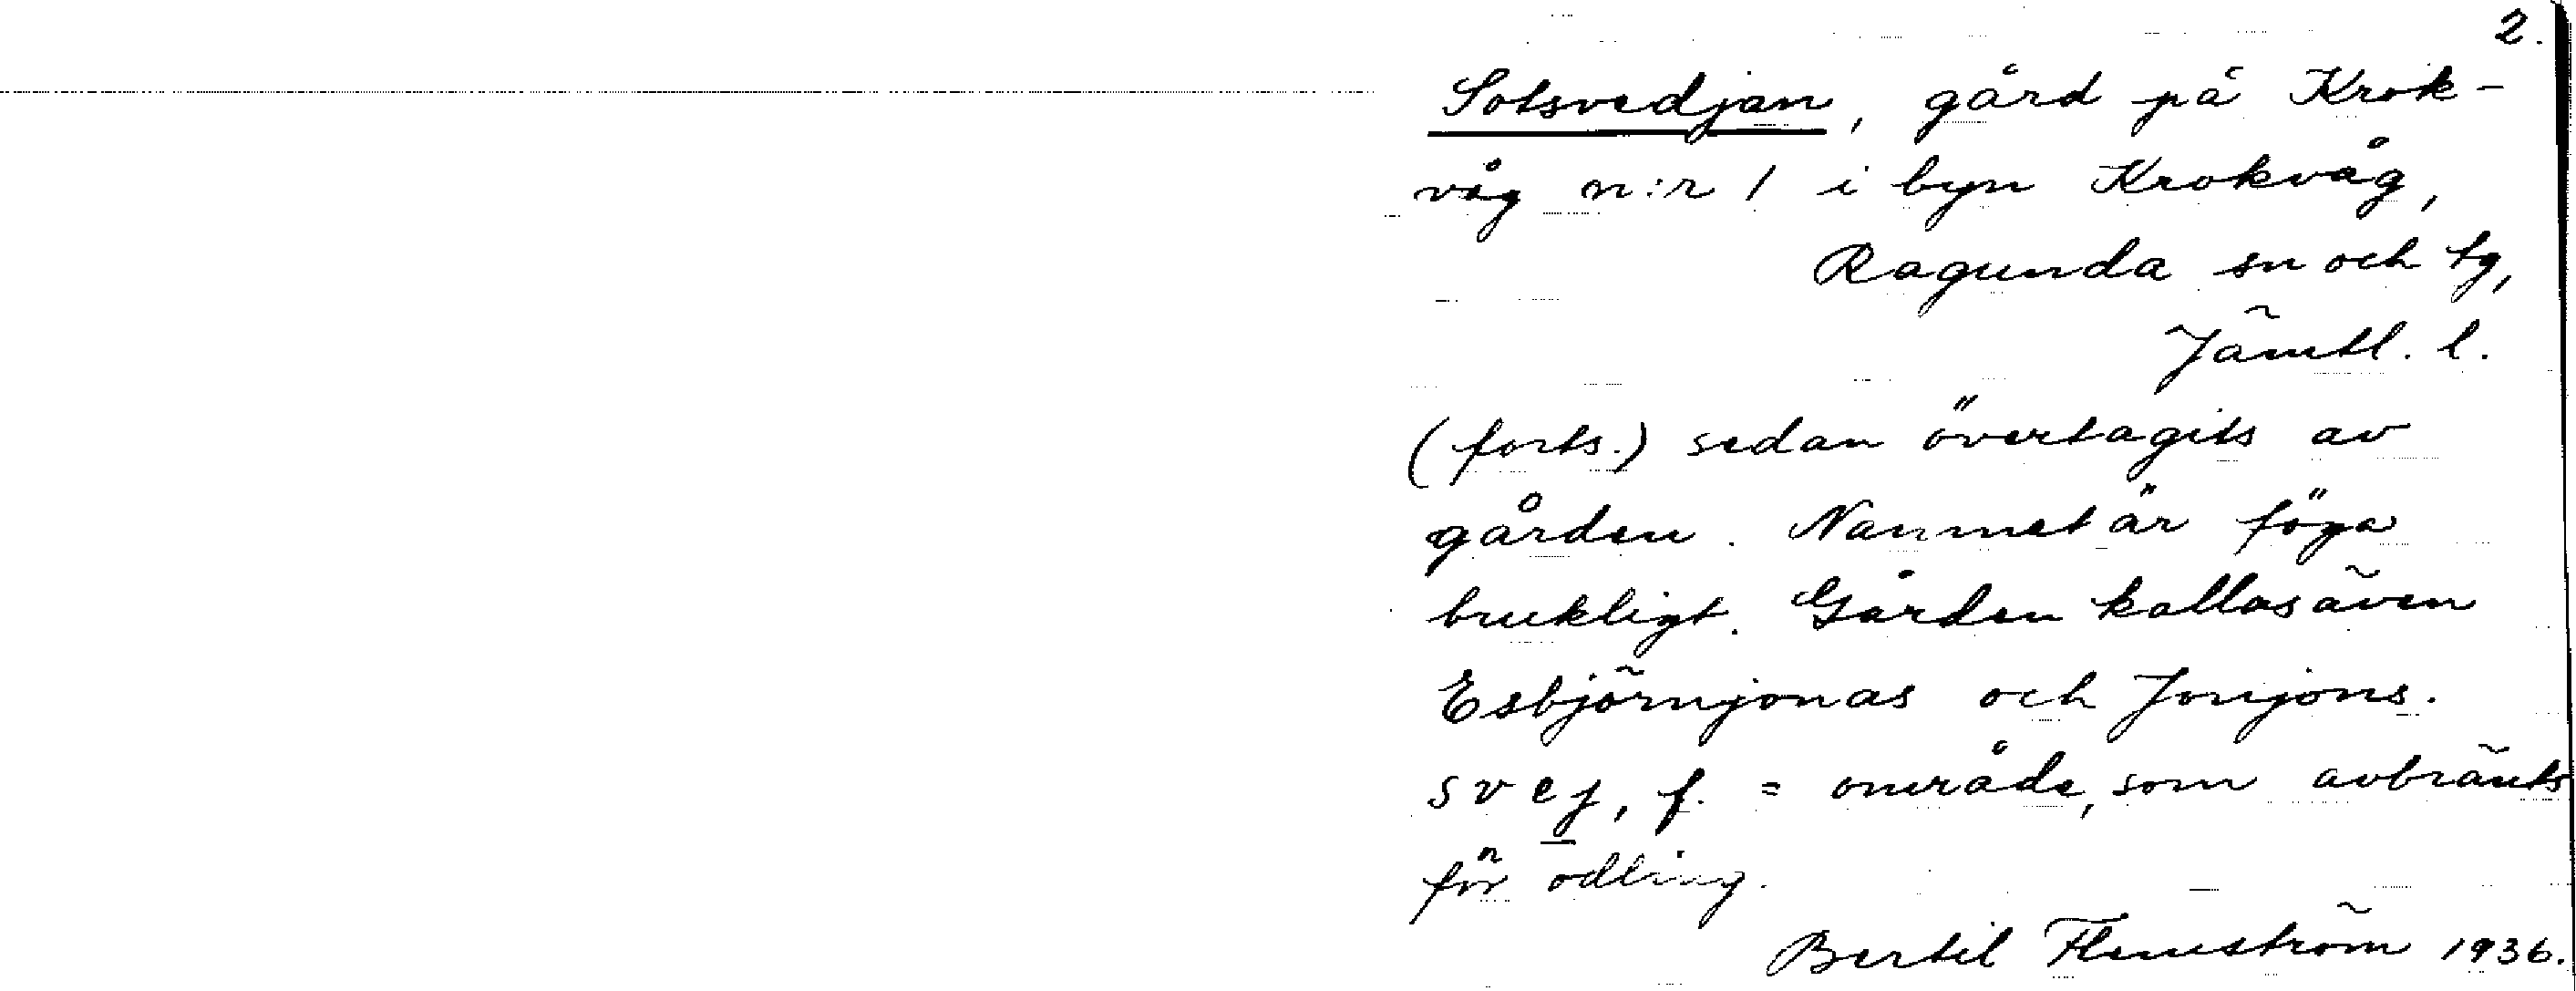 2.
Sotsvedjan, gård på Krok-
våg n:r 1 i byn Krokvåg,
Ragunda sn och tg,
Jämtl. l.
(forts.) sedan övertagits av
gården. Namnet är föga
brukligt. Gården kallas även
Esbjörnjonas och Jonjöns.
svej, f. = område, som avbränts
för odling.
Bertil Flemström 1936.